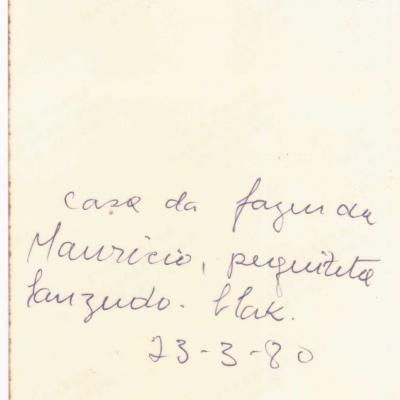 casa da fazenda
Mauricio, periquiteta
lanzudo. blak.
23-3-80